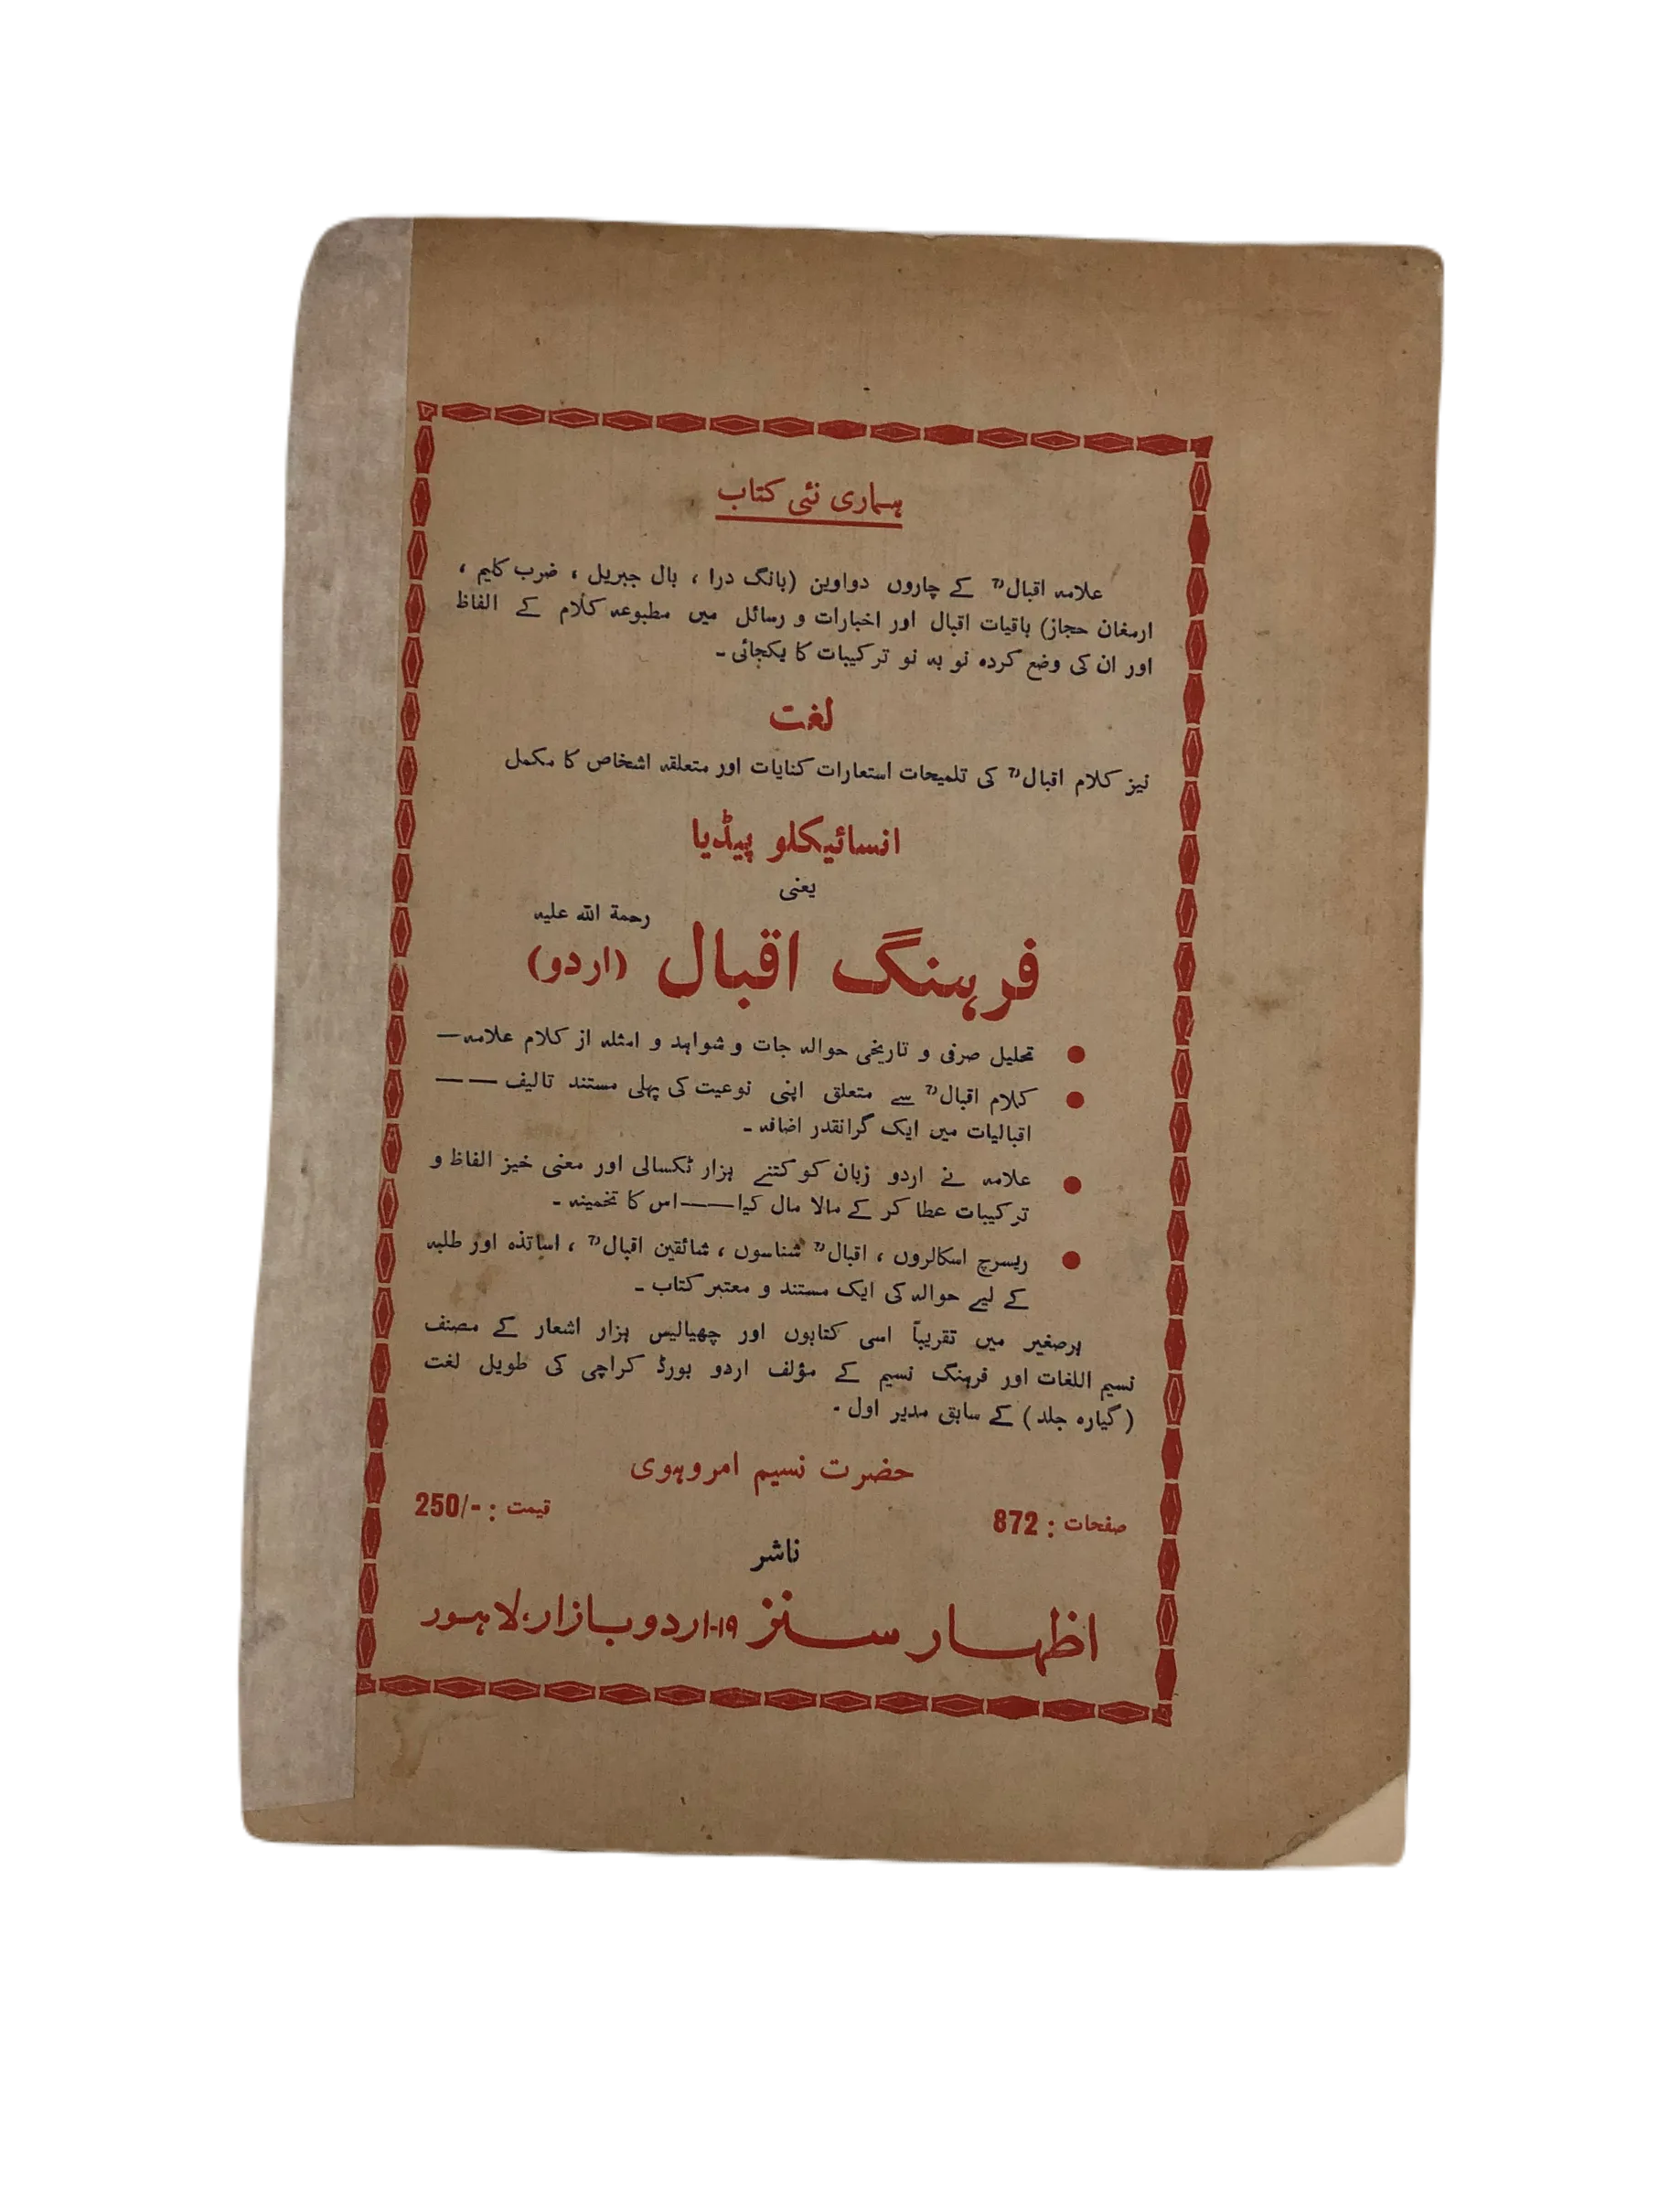 ہماری نئی کتاب
علامہ اقبالؒ کے چاروں دواوین (بانگ درا ، بال جبریل ، ضرب کلیم ،
ارمغان حجاز) باقیات اقبال اور اخبارات و رسائل میں مطبوعہ کلام کے الفاظ
اور ان کی وضع کردہ نو بہ نو ترکیبات کا یکجائی ۔
لغت
نیز کلام اقبالؒ کی تلمیحات استعارات کنایات اور متعلقہ اشخاص کا مکمل
انسائیکلو پیڈیا
یعنی
رحمة اللہ علیہ
فرہنگ اقبال (اردو)
● تحلیل صرفی و تاریخی حوالہ جات و شواہد و امثلہ از کلام علامہ —
● کلام اقبالؒ سے متعلق اپنی نوعیت کی پہلی مستند تالیف — —
اقبالیات میں ایک گرانقدر اضافہ ۔
● علامہ نے اردو زبان کو کتنے ہزار ٹکسالی اور معنی خیز الفاظ و
ترکیبات عطا کر کے مالا مال کیا —— اس کا تخمینہ ۔
● ریسرچ اسکالروں ، اقبالؒ شناسوں ، شائقین اقبالؒ ، اساتذہ اور طلبہ
کے لیے حوالہ کی ایک مستند و معتبر کتاب ۔
برصغیر میں تقریباً اسی کتابوں اور چھیالیس ہزار اشعار کے مصنف
نسیم اللغات اور فرہنگ نسیم کے مؤلف اردو بورڈ کراچی کی طویل لغت
(گیارہ جلد) کے سابق مدیر اول ۔
حضرت نسیم امروہوی
صفحات : 872 قیمت : -/250
ناشر
اظہار سنز ۱۹-اردو بازار، لاہور